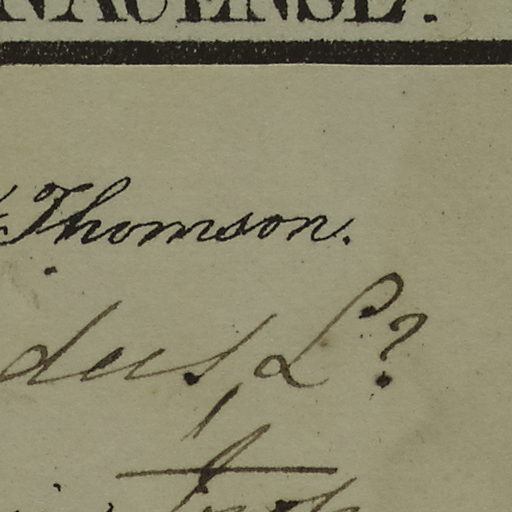 NAUENSE.
& Thomson.
deus, L?